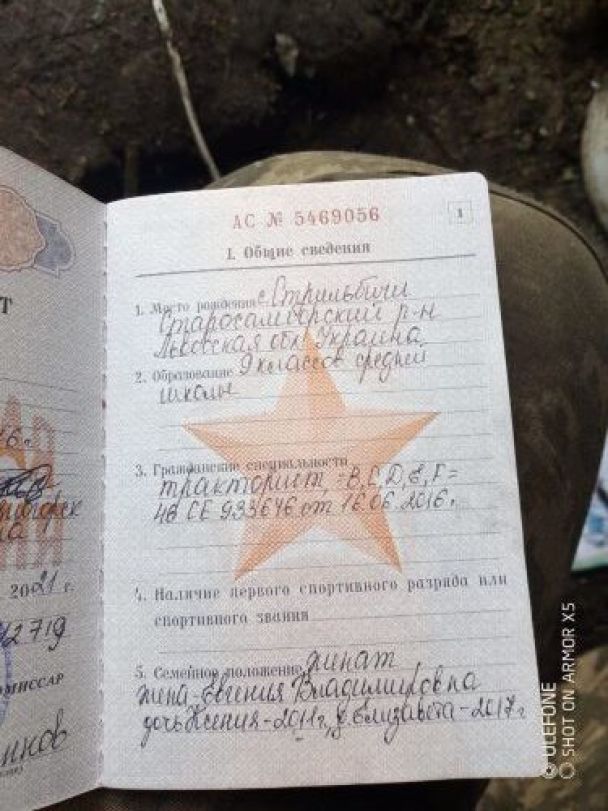 АС № 5469056
1
I. Общие сведения
1. Место рождения с. Стрильбичи
Старосамборский р-н
Львовская обл. Украина
2. Образование 9 классов средней
школы
3. Гражданские специальности
тракторист, =В,С,D,Е,F=
4В СЕ 933646 от 16.06.2016г.
4. Наличие первого спортивного разряда или
спортивного звания
5. Семейное положение женат
жена-Евгения Владимировна
дочь Ксения-2011г., Елизавета-2017г
Т
16 г.
2021 г.
12719
МИССАР
ULEFONE
SHOT ON ARMOR X5